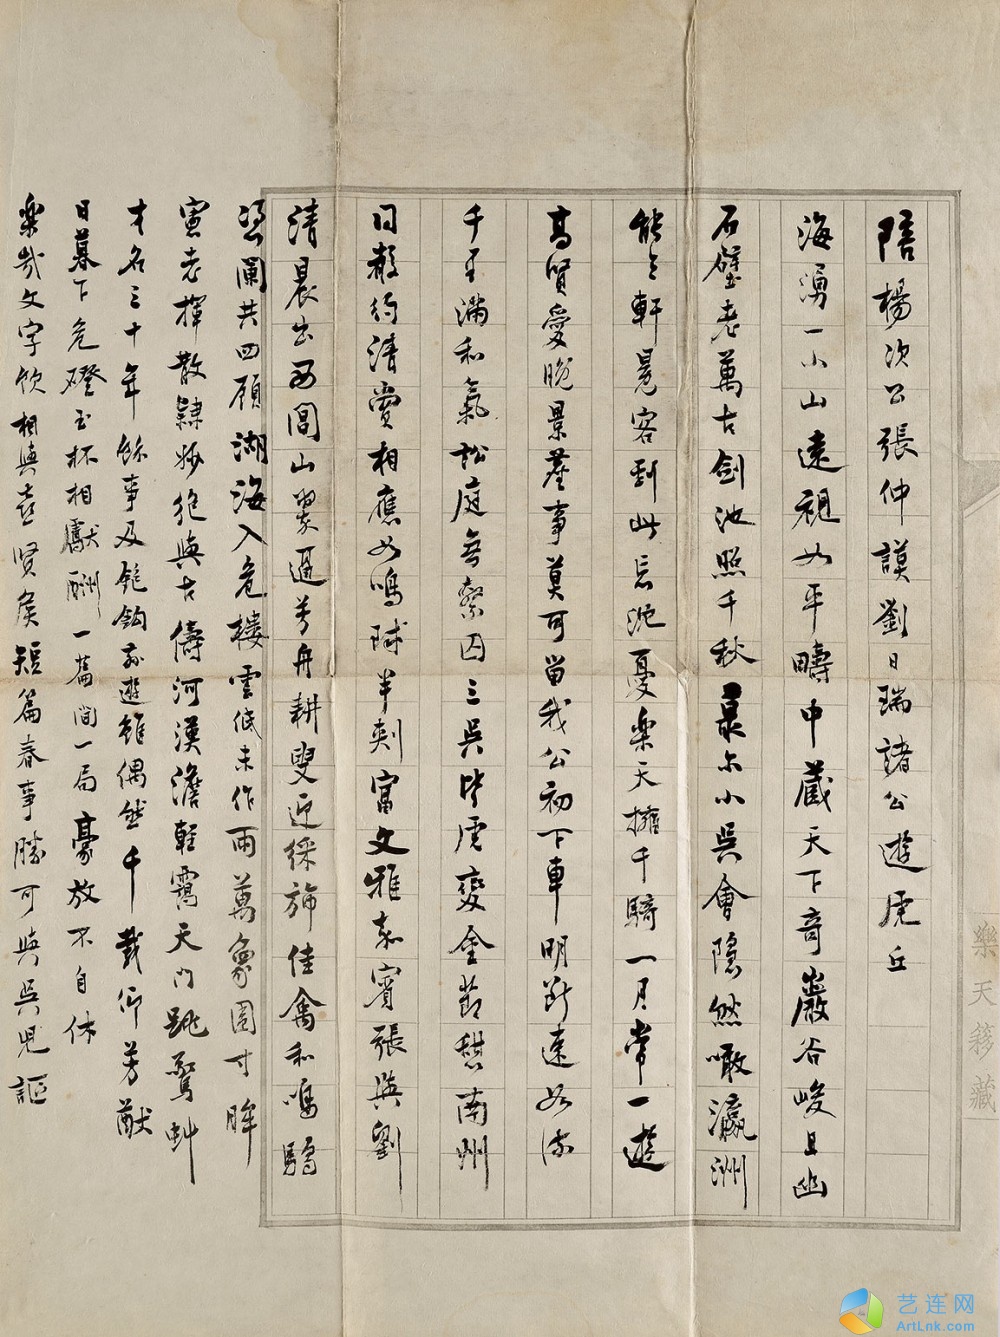 陪楊次公張仲謨劉日瑞諸公遊虎丘
海湧一小山遠視如平疇中藏天下奇巖谷峻且幽
石壁老萬古劍池照千秋最尔小吳會隱然瞰瀛洲
軒冕客到此忘沈憂樂天擁千騎一月常一遊
高賢愛晚景薄事莫可留我公初下車明斷速如流
千里滿和氣訟庭無繫囚三吳皆虎變金節憩南州
同教約清賞相應如鳴球半刺富文雅嘉賓張與劉
清晨出西閶山翠逼芳舟耕叟迎綵旆佳禽和鳴騶
憑闌共四顧湖海入危樓雲低未作雨萬象圍寸眸
寅老揮散隸妙絶與古儔河漢澹輕靄天門跳驚虯
才名三十年餘事及銀鉤茲遊雖偶然千載仰芳猷
日暮下危磴玉杯相獻酬一篇間一局豪放不自休
樂哉文字飲相與喜賢侯短篇春事勝可與吳兒謳
樂天籛藏
艺连网
ArtLnk.com